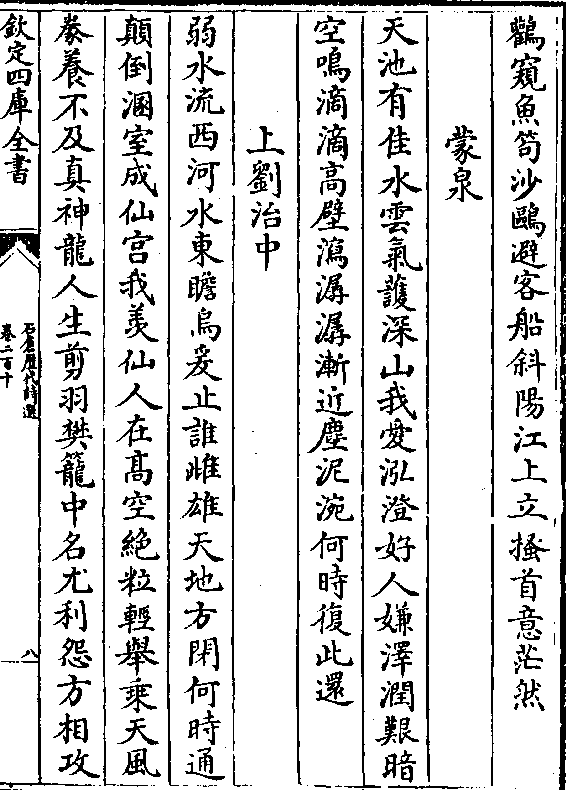 鸛窺魚笱沙鷗避客船斜陽江上立搔首意茫然
蒙泉
天池有佳水雲氣護深山我愛泓澄好人嫌澤潤艱暗
空鳴滴滴高壁瀉潺潺漸近塵泥涴何時復此還
上劉治中
弱水流西河水東瞻烏爰止誰雌雄天地方閉何時通
顛倒溷室成仙宫我羡仙人在髙空絶粒輕舉乘天風
豢養不及真神龍人生剪羽樊籠中名尤利怨方相攻
欽定四庫全書
石倉歷代詩選
卷二百十
八